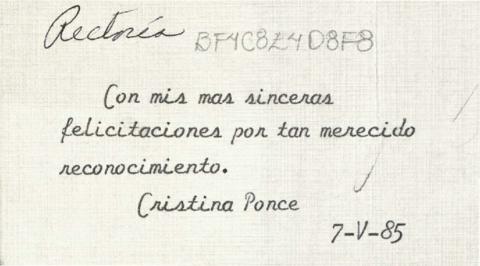 Rectoría BF4C8Z4D8F8
Con mis mas sinceras
felicitaciones por tan merecido
reconocimiento.
Cristina Ponce
7-V-85